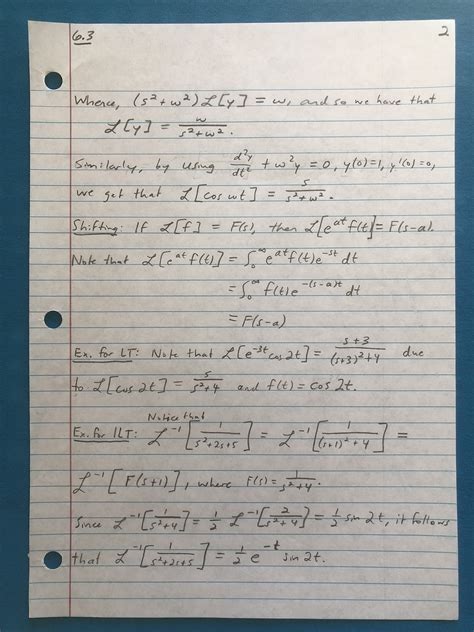 6.3 2
Whence, (s² + w²) ℒ[y] = w, and so we have that
ℒ[y] = w/(s² + w²).
Similarly, by using d²y/dt² + w²y = 0, y(0)=1, y'(0)=0,
we get that ℒ[cos wt] = s/(s² + w²).
Shifting: If ℒ[f] = F(s), then ℒ[e^{at} f(t)] = F(s-a).
Note that ℒ[e^{at} f(t)] = ∫₀^∞ e^{at} f(t) e^{-st} dt
= ∫₀^∞ f(t) e^{-(s-a)t} dt
= F(s-a)
Ex. for LT: Note that ℒ[e^{-3t} cos 2t] = (s+3)/((s+3)²+4) due
to ℒ[cos 2t] = s/(s²+4) and f(t) = cos 2t.
Notice that
Ex. for ILT: ℒ⁻¹[1/(s²+2s+5)] = ℒ⁻¹[1/((s+1)²+4)] =
ℒ⁻¹[F(s+1)], where F(s) = 1/(s²+4).
Since ℒ⁻¹[1/(s²+4)] = 1/2 ℒ⁻¹[2/(s²+4)] = 1/2 sin 2t, it follows
that ℒ⁻¹[1/(s²+2s+5)] = 1/2 e^{-t} sin 2t.